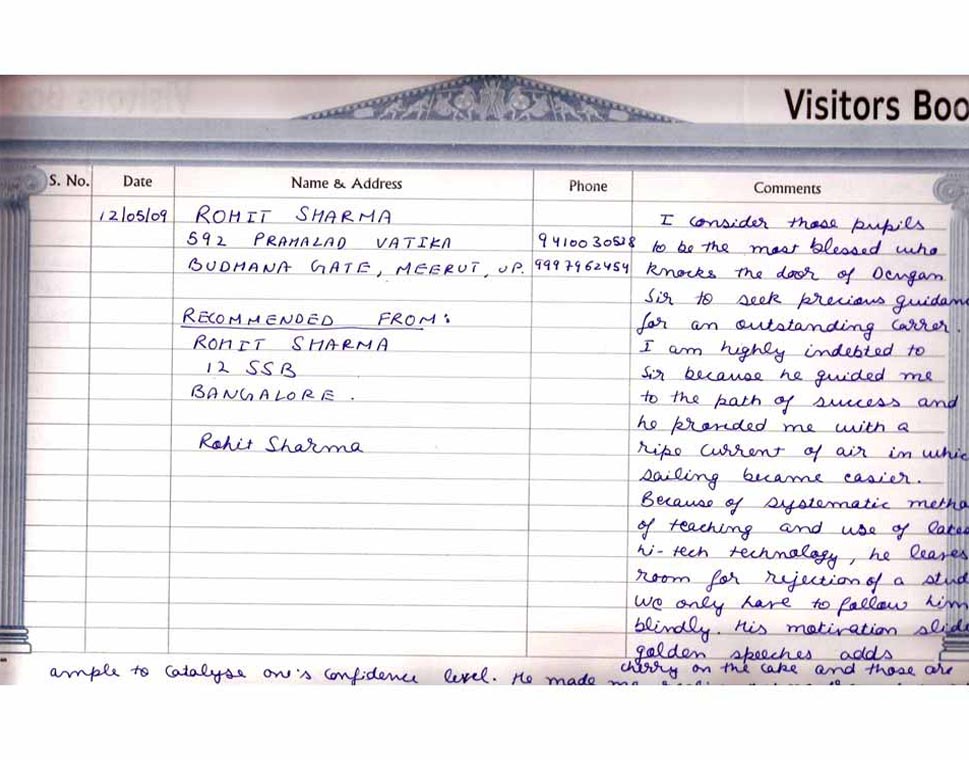 Visitors Boo
S. No. Date Name & Address Phone Comments
12/05/09 ROHIT SHARMA
592 PRAHALAD VATIKA
BUDHANA GATE, MEERUT, UP.
9410030528
9997962454
RECOMMENDED FROM:
ROHIT SHARMA
12 SSB
BANGALORE.
Rohit Sharma
I consider those pupils
to be the most blessed who
knocks the door of Dengan
Sir to seek precious guidan
for an outstanding carrer.
I am highly indebted to
Sir because he guided me
to the path of success and
he provided me with a
ripe current of air in whic
sailing became easier.
Because of systematic metho
of teaching and use of lates
hi-tech technology, he leaves
room for rejection of a stud
We only have to follow him
blindly. His motivation slide
golden speeches adds
cherry on the cake and those are
ample to catalyse one's confidence level. He made me